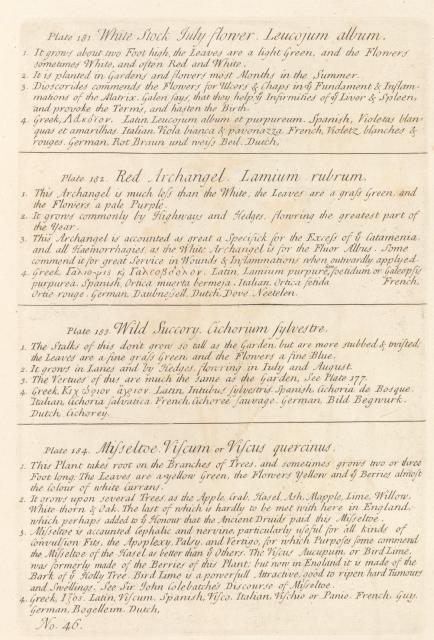 Plate 181. White Stock July flower. Leucojum album.
1. It grows about two Foot high, the Leaves are a light Green, and the Flowers
sometimes White, and often Red and White.
2. It is planted in Gardens and flowers most Months in the Summer.
3. Dioscorides commends the Flowers for Ulcers & Chaps in yͤ Fundament & Inflam-
mations of the Matrix. Galen says, that they help yͤ Infirmities of yͤ Liver & Spleen,
and provoke the Terms, and hasten the Birth.
4. Greek, Latin, Leucojum album et purpureum. Spanish, Violetas blan-
quas et amarilhas. Italian, Viola bianca & pavonazza. French, Violetz blanches &
rouges. German, Rot Braun und weiſs Beil. Dutch,
Plate 182. Red Archangel. Lamium rubrum.
1. This Archangel is much leſs than the White, the Leaves are a graſs Green, and
the Flowers a pale Purple.
2. It grows commonly by Highways and Hedges, flowring the greatest part of
the Year.
3. This Archangel is accounted as great a Specifick for the Exceſs of yͤ Catamenia,
and all Haemorrhagies, as the White Archangel is for the Fluor Albus. Some
commend it for great Service in Wounds & Inflammations when outwardly applyed.
4. Greek, Γαλιοψις ϗ Γαλεοβδολον. Latin, Lamium purpureũ foetidum or Galeopsis
purpurea. Spanish, Ortica muerta bermeja. Italian, Ortica fetida French,
Ortie rouge. German, Daubneſsell. Dutch, Dove Neetelen.
Plate 183. Wild Succory. Cichorium ſylvestre.
1. The Stalks of this don't grow so tall as the Garden, but are more stubbed & twisted;
the Leaves are a fine graſs Green, and the Flowers a fine Blue.
2. It grows in Lanes and by Hedges, flowring in July and August.
3. The Vertues of this are much the same as the Garden, See Plate 177.
4. Greek, Κιχωριον αγριον. Latin, Intubus sylvestris. Spanish, Cichoria de Bosque.
Italian, Cichoria salvatica. French, Cichoreé sauvage. German, Bild Begwurk.
Dutch, Cichorey.
Plate 184. Miſseltoe. Viſcum or Viſcus quercinus.
1. This Plant takes root on the Branches of Trees, and sometimes grows two or three
Foot long; The Leaves are a yellow Green, the Flowers Yellow and yͤ Berries almost
the Colour of white Currans.
2. It grows upon several Trees, as the Apple, Crab, Hasel, Ash, Mapple, Lime, Willow,
White thorn & Oak. The last of which is hardly to be met with here in England,
which perhaps added to yͤ Honour that the Ancient Druids paid this Miſseltoe.
3. Miſseltoe is accounted Cephalic and nervine, particularly useful for all kinds of
Convulsion Fits, the Apoplexy, Palsy, and Vertigo, for which Purposes some commend
the Miſseltoe of the Hasel as better than yͤ Others. The Viſcus Aucupum, or Bird Lime,
was formerly made of the Berries of this Plant; but now in England it is made of the
Bark of yͤ Holly Tree. Bird Lime is a powerfull Attractive, good to ripen hard Tumours
and Swellings. See Sir John Colebatch's Discourse of Miſseltoe.
4. Greek, Ιξος. Latin, Viſcum. Spanish, Viſco. Italian, Viſchio or Panio. French, Guy.
German, Bogelleim. Dutch,
No. 46.